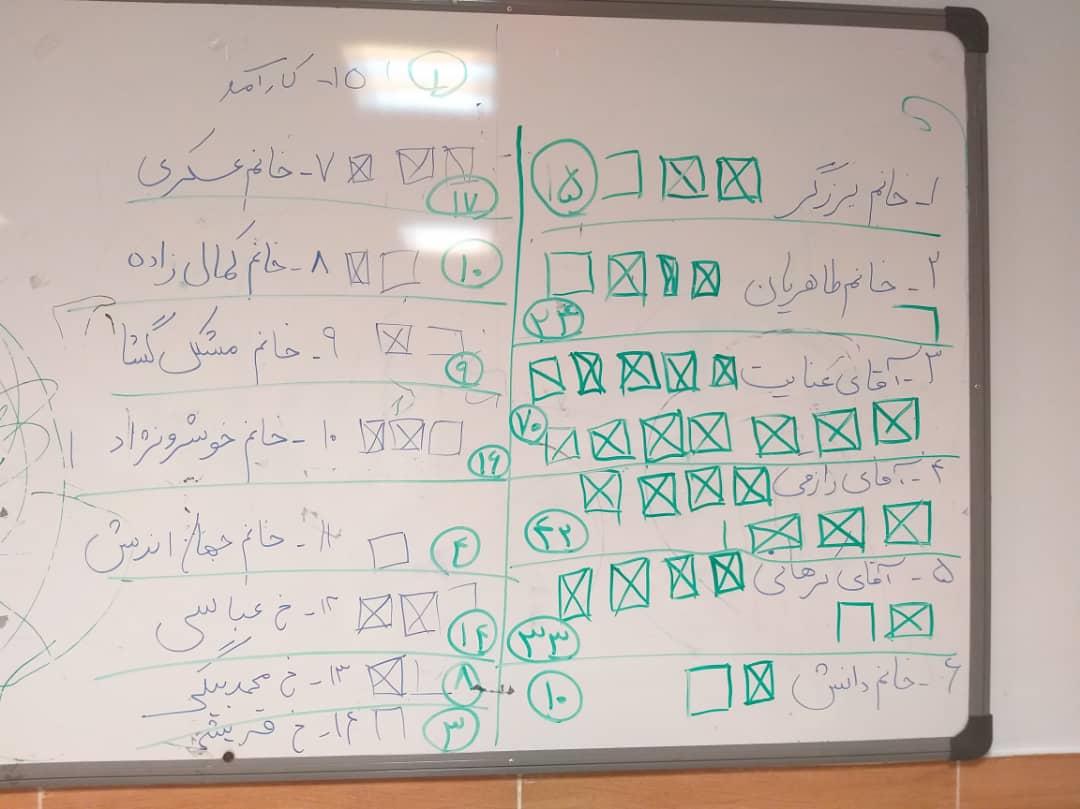 ۱- خانم برزگر ۱۵
۲- خانم طاهریان ۲۴
۳- آقای عنایت ۷۰
۴- آقای رازمی ۴۲
۵- آقای برهانی ۳۳
۶- خانم دانش ۱۰
۱۵- کارآمد
۷- خانم عسکری ۱۷
۸- خانم کمال زاده ۱۰
۹- خانم مشکل گشا ۹
۱۰- خانم خوشرونژاد ۱۶
۱۱- خانم جهان اندیش ۴
۱۲- خ عباسی ۱۴
۱۳- خ محمدبیگی ۸
۱۴- خ قریشی ۳